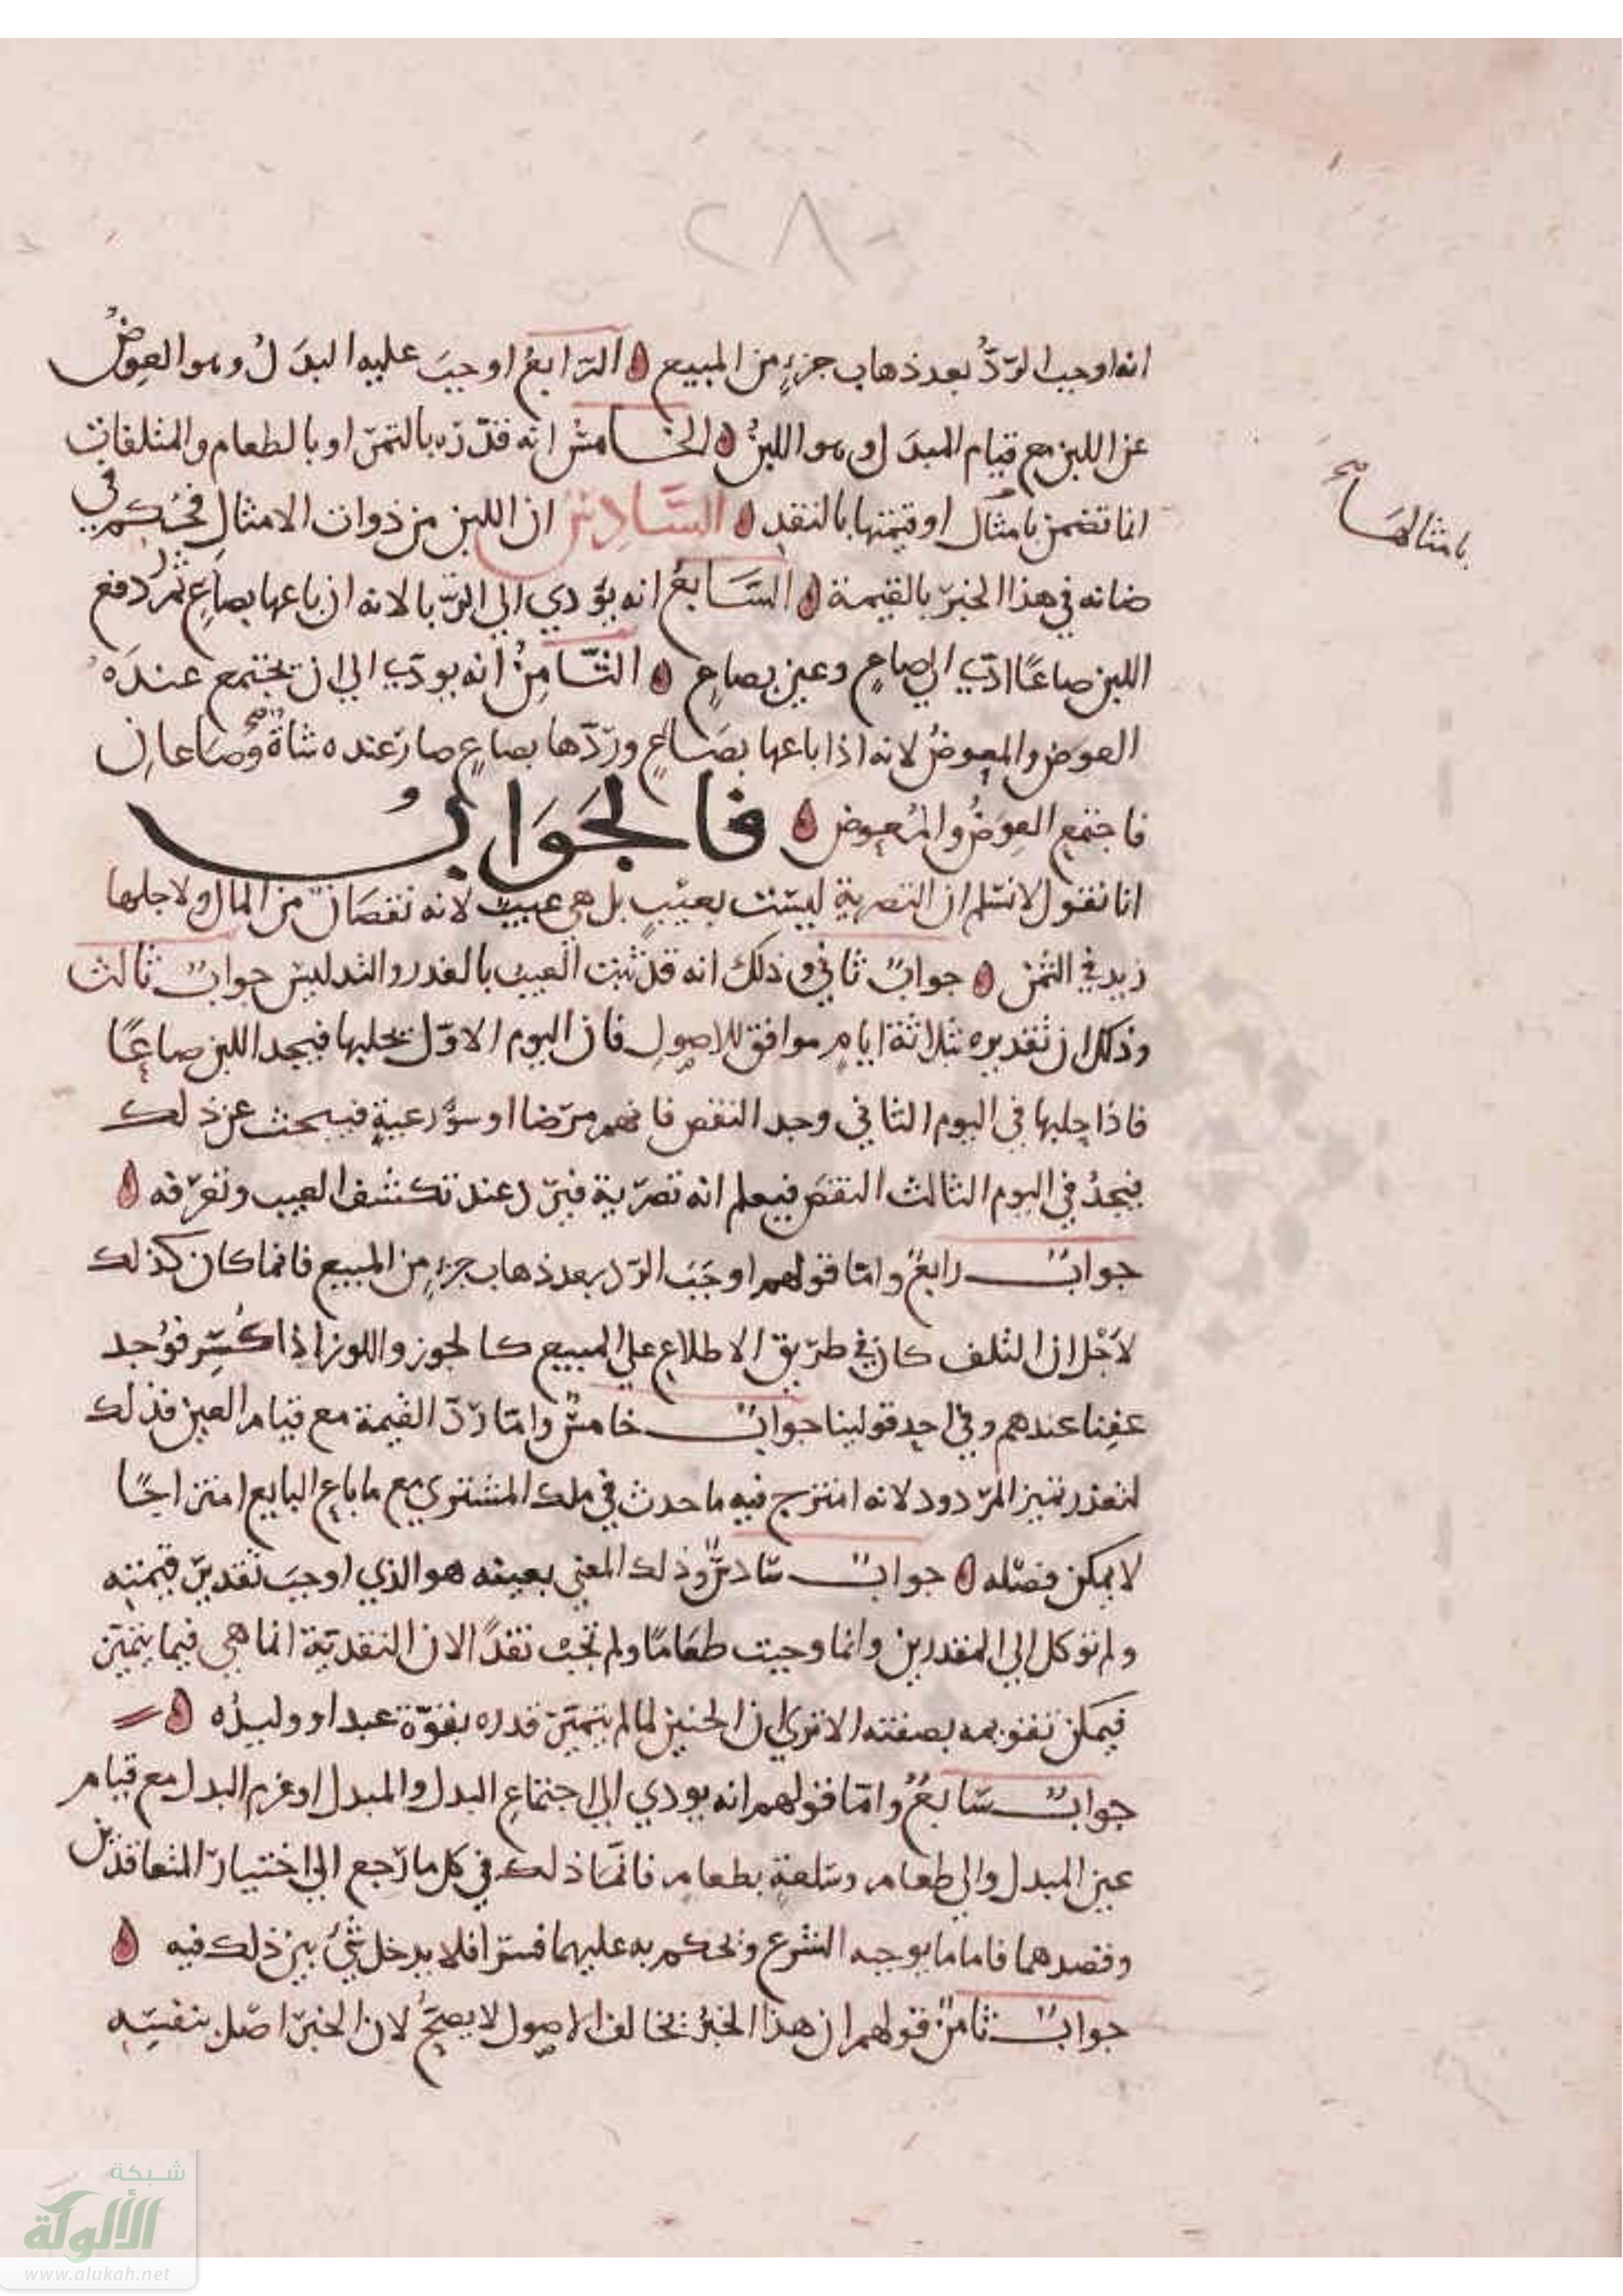 ٢٨٠
انه اوجب الرّدُّ بعد ذهاب جزءٍ من المبيع ٥ الرّابعُ اوجبَ عليه البدَلُ وهو العِوضُ
عن اللبن مع قيام المبدَل وهو اللبنُ ٥ الخامسُ انه قدّره بالتمر او بالطعام والمتلفات
انما تضمن بامثال او قيمتها بالنقد ٥ السَّادِسُ ان اللبن من ذوات الامثال فحُكم في
بامثالهَا صح
ضمانه في هذا الخبر بالقيمة ٥ السَّابعُ انه يؤدي الي الربا لانه ان باعها بصاعِ تمرٍ دفع
اللبن صاعًا ادّي الي صاعٍ وعين بصاعٍ ٥ الثَّامِنُ انه يودّي الي ان يجتمع عندَه
العوَض والمعوضُ لانه اذا باعها بصَاعٍ وردّها بصاعٍ صار عنده شاةٌ وصَاعانِ
فاجتمع العِوَضُ والمُعوض ٥ فالجَوَابُ
انا نقول لا نسلم ان التصرية ليسَت بعيْبٍ بل هي عيبٌ لانه نقصَانٌ من المال ولاجلها
زيد في الثمن ٥ جوابٌ ثاني وذلك انه قد ثبت العيب بالغدر والتدليس جوابٌ ثالث
وذلك ان تقديره بثلاثة ايامٍ موافق للاصولِ فان اليوم الاوّل يحلبها فيجد اللبن صاعًا
فاذا حلبها في اليوم الثاني وجد النقص فاتهم مرضا او سوُّ رعيةٍ فيبحث عن ذلك
فيجدُ في اليوم الثالث النقصَ فيعلم انه تصرية فيردّ عند تكشف العيب وتعرّفه ٥
جوابٌ رابعٌ وامّا قولهم اوجَبَ الردّ بعد ذهاب جزءٍ من المبيع فانما كان كذلك
لاَجْل ان التلف كان في طريق الاطلاع علي المبيع كالجوز واللوز اذا كُسِر فوُجد
عفِنا عندهم وفي احد قولينا جوابٌ خامسٌ وامّا ردّ القيمة مع قيام العين فذلك
لتعذر تميز المردود لانه امتزج فيه ما حدث في ملك المشتري مع ما باع البايع امتزاجًا
لا يمكن فصْله ٥ جوابٌ سَادسٌ وذلك المعني بعينه هو الذي اوجبَ تقدير قيمته
ولم توكل الي المقدرين وانما وجبت طعَامًا ولم تجبْ نقدًا لان النقديّة انما هي فيما يتميّز
فيمكن تقويمه بصفته الا تري ان الجنين لما لم يتميّز قدره بغرّة عبد او وليدَه ٥
جوابٌ سَابعٌ وامّا قولهم انه يودي الي اجتماعِ البدل والمبدل او غرم البدل مع قيام
عين المبدل والي طعام وسلعةٍ بطعام فانمَا ذلك في كل ما رجع الي اختيار المتعاقدَين
وقصدهما فاما ما يوجبه الشرع ويحكم به عليهما قسرا فلا يدخل شيٌ من ذلك فيه ٥
جوابٌ ثامنٌ قولهم ان هذا الخبرُ يخالف الاصول لا يصحُّ لان الخبر اصْل بنفسِه
شبكة
الألوكة
www.alukah.net